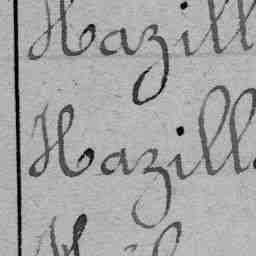 Hazill
Hazill.